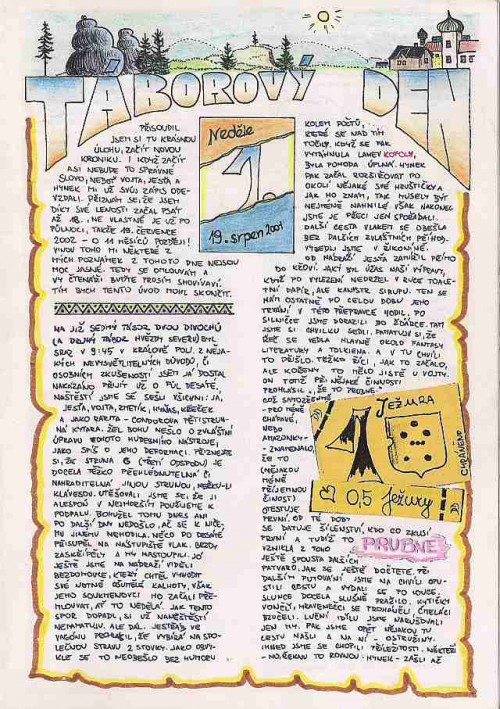 TÁBOROVÝ DEN
PŘISOUDIL
JSEM SI TU KRÁSNOU
ÚLOHU, ZAČÍT NOVOU
KRONIKU. I KDYŽ ZAČÍT
ASI NEBUDE TO SPRÁVNÉ
SLOVO, NEBOŤ VOJTA, JEŠTĚ A
HYNEK MI UŽ SVŮJ ZÁPIS ODE-
VZDALI. PŘIZNÁM SE, ŽE JSEM
DÍKY SVÉ LENOSTI ZAČAL PSÁT
AŽ 18. NE VLASTNĚ JE UŽ PO
PŮLNOCI, TAKŽE 19. ČERVENCE
2002 – O 11 MĚSÍCŮ POZDĚJI!
MÝCH POZNÁMEK Z TOHOTO DNE NEJSOU
MOC JASNÉ. TEDY SE OMLOUVÁM A
VY ČTENÁŘI BUĎTE PROSÍM SHOVÍVAVÍ.
TÍM BYCH TENTO ÚVOD MOHL SKONČIT.
Neděle
1.
19. srpen 2001
NA JIŽ SEDMÝ TÁBOR DVOU DIVOCHŮ
(A DRUHÝ TÁBOR HVĚZDY SEVERU) BYL
SRAZ V 9:45 V KRÁLOVĚ POLI. Z NĚJA-
KÝCH NEVYSVĚTLITELNÝCH DŮVODŮ, ČI
OSOBNÍCH ZKUŠENOSTÍ JSEM JÁ DOSTAL
NAKÁZÁNO PŘIJÍT UŽ O PŮL DESÁTÉ.
NAŠTĚSTÍ JSME SE SEŠLI VŠICHNI: JÁ,
A JAKO RARITA – CONDOROVA PĚTISTRUN-
NÁ KYTARA. ŽEL BOHU NEŠLO O ZVLÁŠTNÍ
ÚPRAVU TOHOTO HUDEBNÍHO NÁSTROJE,
JAKO SPÍŠ O JEHO DEFORMACI. PŘIZNEJTE
SI, ŽE STRUNA G (TŘETÍ ODSPODU) JE
DOCELA TĚŽKO PŘEHLÉDNUTELNÁ ČI
NAHRADITELNÁ JINOU STRUNOU,
KLÁVESOU. UTĚŠOVALI JSME SE, ŽE JI
ALESPOŇ V NEJHORŠÍM POUŽIJETE K
PODPALU. BOHUŽEL TOHO DNES ANI
PO DALŠÍ DNY NEDOŠLO, AČ SE K NIČE-
MU JINÉMU NEHODILA. NĚCO PO DESÁTÉ
PŘISUPĚL NA NÁSTUPIŠTĚ VLAK. BRZDY
ZASKŘÍPĚLY A MY NASTOUPILI. JO
JEŠTĚ JSME NA NÁDRAŽÍ VIDĚLI
BEZDOMOVCE, KTERÝ CHTĚL VYHODIT
SVÉ NUTNĚ OŠUNTĚLÉ KALHOTY, VŠAK
JEHO SOUKMENOVCI HO ZAČALI PŘE-
MLOUVAT, AŤ TO NEDĚLÁ. JAK TENTO
SPOR DOPADL, SI UŽ NANEŠTĚSTÍ
NEPAMATUJI. ALE DÁL. JEŠTĚRÁK VE
VAGÓNU PROHLÁSIL, ŽE VYBÍRÁ NA SPO-
LEČNOU STRAVU 2 STOVKY. JAKO OBVY-
KLE SE TO NEOBEŠLO BEZ HUMORU
KOLEM POČTŮ,
KTERÉ SE NAD TÍM
TOČILY. KDYŽ SE PAK
VYTÁHNULA LAHEV KOFOLY,
BYLA POHODA ÚPLNÁ. HYNEK
PAK ZAČAL ROZŠIŘOVAT PO
OKOLÍ NĚJAKÉ SVÉ HRUŠTIČKY A
JAK HO ZNÁM, TAK MUSELY BÝT
NEJMÉNĚ NAHNILÉ. VŠAK NAKONEC
JSME JE PŘECI JEN SPOŘÁDALI.
DALŠÍ CESTA VLAKEM SE OBEŠLA
BEZ DALŠÍCH ZVLÁŠTNÍCH PŘÍHOD.
VYSEDLI JSME V
OD NÁDRAŽÍ JEŠTĚ ZAMÍŘIL PŘÍMO
DO KŘOVÍ. JAKÝ BYL ÚŽAS NAŠÍ VÝPRAVY,
KDYŽ PO VYLEZENÍ NEDRŽEL V RUCE TOALE-
TNÍ PAPÍR, ALE KANYSTR SIRUPU. TEN SE
NÁM OSTATNĚ PO CELOU DOBU JEHO
TRVÁNÍ V TÉTO PŘEPRAVCE HODIL. PO
SILNIČCE JSME DORAZILI DO ŽĎÁRCE. TAM
JSME SI CHVILKU SEDLI. PAMATUJI SI, ŽE
ŘEČ SE VEDLA HLAVNĚ OKOLO FANTASY
LITERATURY A TOLKIENA. A V TU CHVÍLI
TO PŘIŠLO. TĚŽKO ŘÍCI, JAK TO ZAČALO,
ALE KOŘENY TO MĚLO JISTĚ U VOJTY.
ON TOTIŽ PŘI NĚJAKÉ ČINNOSTI
PROHLÁSIL, ŽE TO PRUBNE.
COŽ SAMOZŘEJMĚ
– PRO MÉNĚ
CHÁPAVÉ,
NEBO
AMAZONKY –
ZNAMENALO,
ŽE TO
(NĚJAKOU
MÉNĚ
PŘÍJEMNOU
ČINNOST)
OTESTUJE
PRVNÍ. OD TÉ DOBY
SE DATUJE SÍLENSTVÍ, KDO CO ZKUSÍ
PRVNÍ A TUDÍŽ TO PRUBNE
VZNIKLA Z TOHO
JEŠTĚ SPOUSTA DALŠÍCH
PATVARŮ, JAK SE JEŠTĚ DOČTETE. PŘI
DALŠÍM PUTOVÁNÍ JSME NA CHVÍLI OPU-
STILI CESTU A VYDALI SE PO LOUCE.
SLUNCE DOCELA SLUŠNĚ PRAŽILO. KYTIČKY
VONĚLY, MRAVENEČCI SE PROHÁNĚLI, ČMELÁCI
BZUČELI. LUČNÍ IDYLU JSME NARUŠOVALI
JEN MY. PAK JSME OPĚT NĚJAKOU TU
CESTU NAŠLI A NA NÍ – OSTRUŽINY.
IHNED JSME SE CHOPILI PŘÍLEŽITOSTI. NĚKTEŘÍ
– NO, ŘEKNU TO ROVNOU: HYNEK – ZAŠLI AŽ
JEŽURA
CHRÁNĚNO
0,5 Ježury